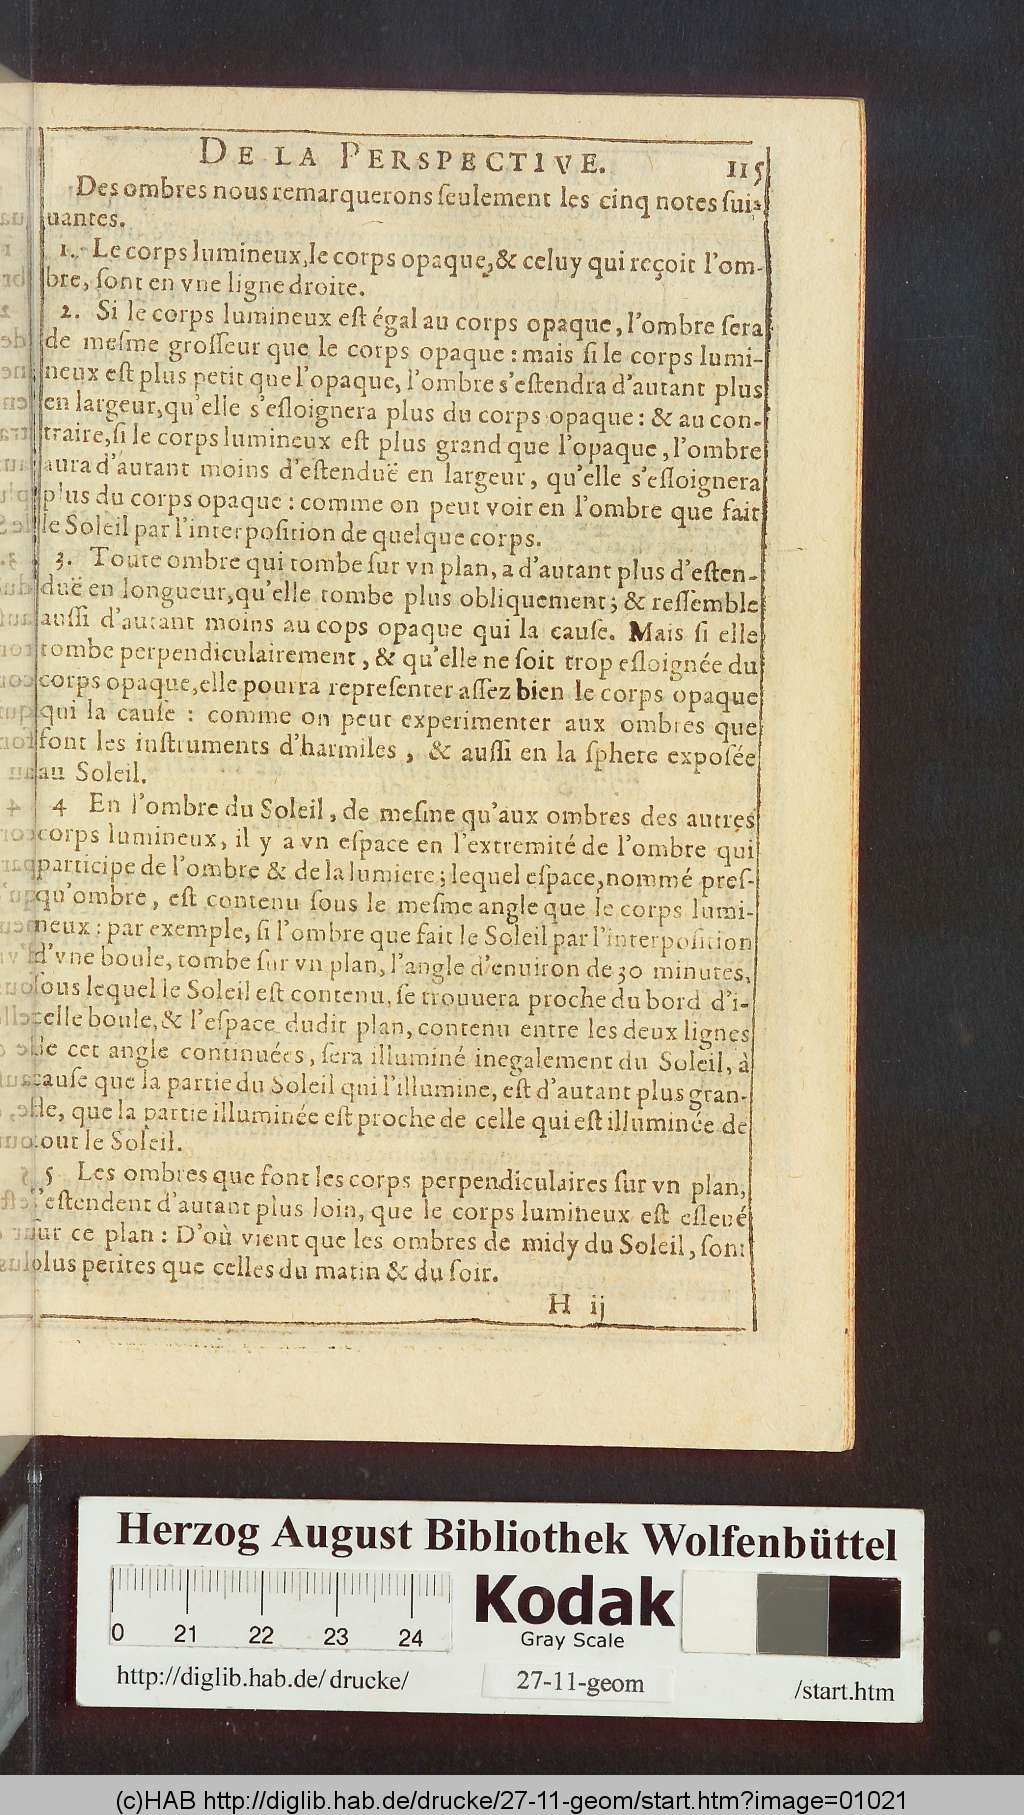 DE LA PERSPECTIVE. 115
Des ombres nous remarquerons ſeulement les cinq notes ſui-
uantes.
1. Le corps lumineux, le corps opaque, & celuy qui reçoit l'om-
bre, ſont en vne ligne droite.
2. Si le corps lumineux eſt égal au corps opaque, l'ombre ſera
de meſme groſſeur que le corps opaque : mais ſi le corps lumi-
neux eſt plus petit que l'opaque, l'ombre s'eſtendra d'autant plus
en largeur, qu'elle s'eſloignera plus du corps opaque : & au con-
traire, ſi le corps lumineux eſt plus grand que l'opaque, l'ombre
aura d'autant moins d'eſtenduë en largeur, qu'elle s'eſloignera
plus du corps opaque : comme on peut voir en l'ombre que fait
le Soleil par l'interpoſition de quelque corps.
3. Toute ombre qui tombe ſur vn plan, a d'autant plus d'eſten-
duë en longueur, qu'elle tombe plus obliquement ; & reſſemble
auſſi d'autant moins au cops opaque qui la cauſe. Mais ſi elle
tombe perpendiculairement, & qu'elle ne ſoit trop eſloignée du
corps opaque, elle pourra repreſenter aſſez bien le corps opaque
qui la cauſe : comme on peut experimenter aux ombres que
font les inſtruments d'harmiles, & auſſi en la ſphere expoſée
au Soleil.
4 En l'ombre du Soleil, de meſme qu'aux ombres des autres
corps lumineux, il y a vn eſpace en l'extremité de l'ombre qui
participe de l'ombre & de la lumiere ; lequel eſpace, nommé preſ-
qu'ombre, eſt contenu ſous le meſme angle que le corps lumi-
neux : par exemple, ſi l'ombre que fait le Soleil par l'interpoſition
d'vne boule, tombe ſur vn plan, l'angle d'enuiron de 30 minutes,
ſous lequel le Soleil eſt contenu, ſe trouuera proche du bord d'i-
celle boule, & l'eſpace dudit plan, contenu entre les deux lignes
de cet angle continuées, ſera illuminé inegalement du Soleil, à
cauſe que la partie du Soleil qui l'illumine, eſt d'autant plus gran-
de, que la partie illuminée eſt proche de celle qui eſt illuminée de
tout le Soleil.
5 Les ombres que font les corps perpendiculaires ſur vn plan,
s'eſtendent d'autant plus loin, que le corps lumineux eſt eſleué
ſur ce plan : D'où vient que les ombres de midy du Soleil, ſont
plus petites que celles du matin & du ſoir.
H ij
Herzog August Bibliothek Wolfenbüttel
0 21 22 23 24
Kodak
Gray Scale
http://diglib.hab.de/drucke/ 27-11-geom /start.htm
(c)HAB http://diglib.hab.de/drucke/27-11-geom/start.htm?image=01021